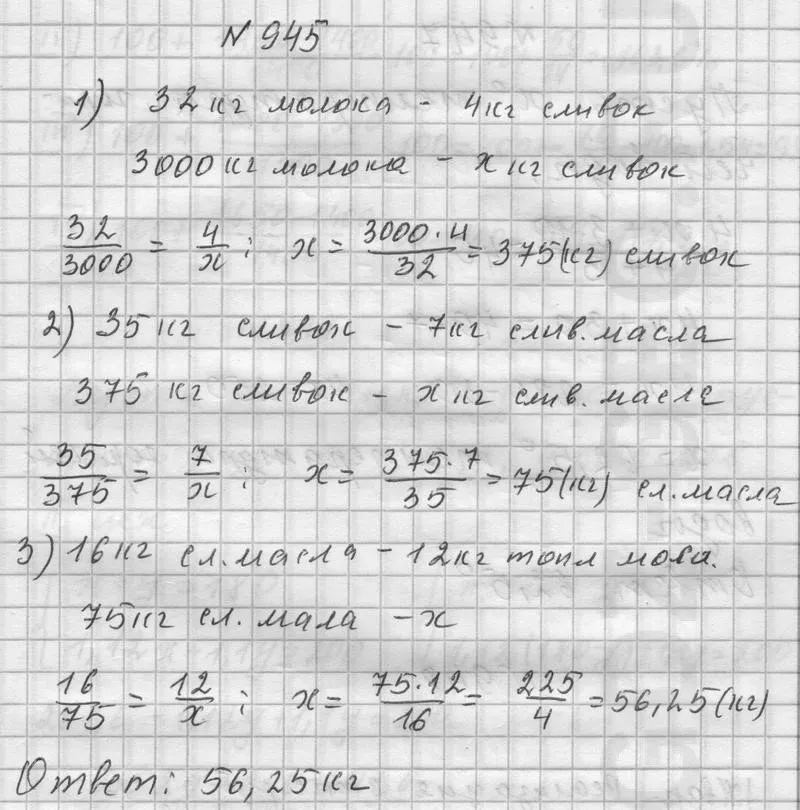 N 945
1) 32 кг молока - 4 кг сливок
3000 кг молока - x кг сливок
32/3000 = 4/x ; x = 3000·4/32 = 375 (кг) сливок
2) 35 кг сливок - 7 кг слив. масла
375 кг сливок - x кг слив. масла
35/375 = 7/x ; x = 375·7/35 = 75 (кг) сл. масла
3) 16 кг сл. масла - 12 кг топл
75 кг сл. мала - x
16/75 = 12/x ; x = 75·12/16 = 225/4 = 56,25 (кг)
Ответ: 56,25 кг